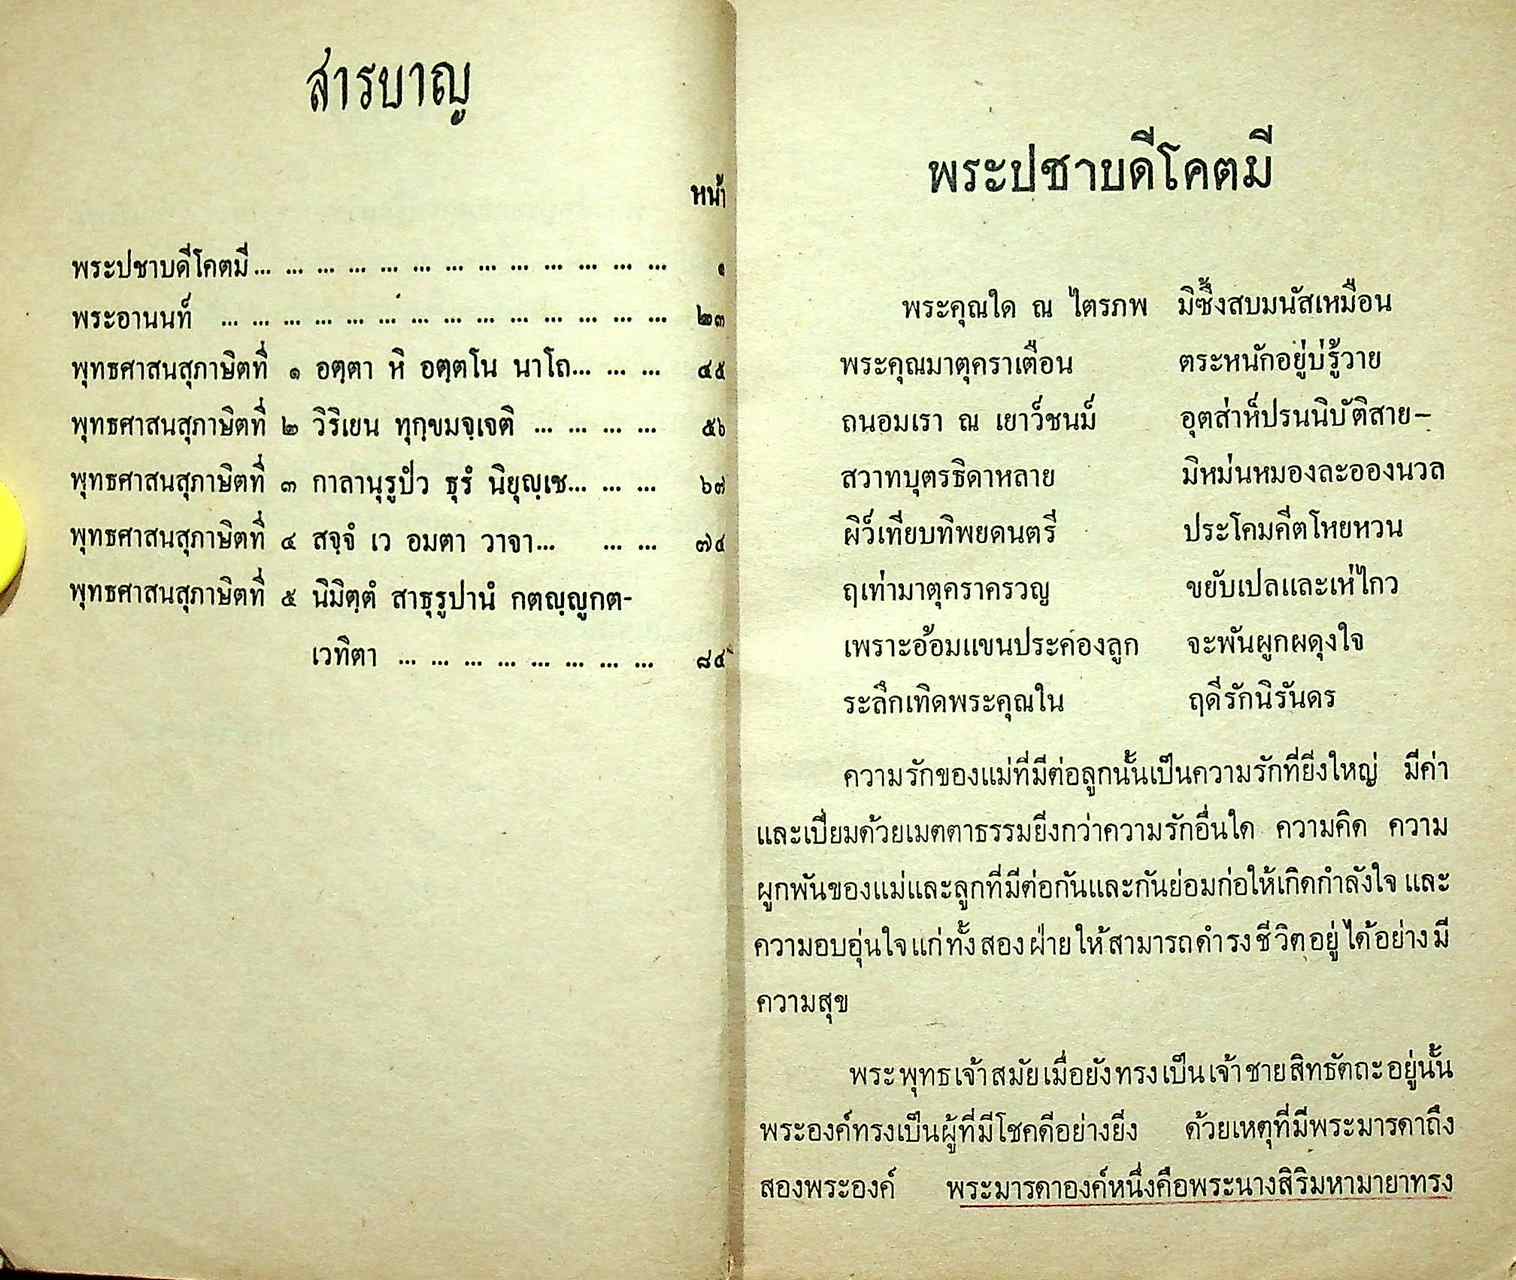 สารบาญ
หน้า
พระปชาบดีโคตมี... ... ... ... ... ... ... ... ... ... ... ... ... ๑
พระอานนท์ ... ... ... ... ... ... ... ... ... ... ... ... ... ... ๒๓
พุทธศาสนสุภาษิตที่ ๑ อตฺตา หิ อตฺตโน นาโถ... ... ... ๔๕
พุทธศาสนสุภาษิตที่ ๒ วิริเยน ทุกฺขมจฺเจติ ... ... ... ... ๕๖
พุทธศาสนสุภาษิตที่ ๓ กาลานุรูปํว ธุรํ นิยุญฺเช... ... ... ๖๗
พุทธศาสนสุภาษิตที่ ๔ สจฺจํ เว อมตา วาจา... ... ... ๗๔
พุทธศาสนสุภาษิตที่ ๕ นิมิตฺตํ สาธุรูปานํ กตญฺญูกต-
เวทิตา ... ... ... ... ... ... ... ... ... ๘๔
พระปชาบดีโคตมี
พระคุณใด ณ ไตรภพ มิซึ้งสบมนัสเหมือน
พระคุณมาตุคราเตือน ตระหนักอยู่บ่รู้วาย
ถนอมเรา ณ เยาว์ชนม์ อุตส่าห์ปรนนิบัติสาย–
สวาทบุตรธิดาหลาย มิหม่นหมองละอองนวล
ผิว์เทียบทิพยดนตรี ประโคมคีตโหยหวน
ฤเท่ามาตุคราครวญ ขยับเปลและเห่ไกว
เพราะอ้อมแขนประคองลูก จะพันผูกผดุงใจ
ระลึกเทิดพระคุณใน ฤดีรักนิรันดร
ความรักของแม่ที่มีต่อลูกนั้นเป็นความรักที่ยิ่งใหญ่ มีค่า
และเปี่ยมด้วยเมตตาธรรมยิ่งกว่าความรักอื่นใด ความคิด ความ
ผูกพันของแม่และลูกที่มีต่อกันและกันย่อมก่อให้เกิดกำลังใจ และ
ความอบอุ่นใจแก่ทั้งสองฝ่ายให้สามารถดำรงชีวิตอยู่ได้อย่างมี
ความสุข
พระพุทธเจ้าสมัยเมื่อยังทรงเป็นเจ้าชายสิทธัตถะอยู่นั้น
พระองค์ทรงเป็นผู้ที่มีโชคดีอย่างยิ่ง ด้วยเหตุที่มีพระมารดาถึง
สองพระองค์ พระมารดาองค์หนึ่งคือพระนางสิริมหามายาทรง